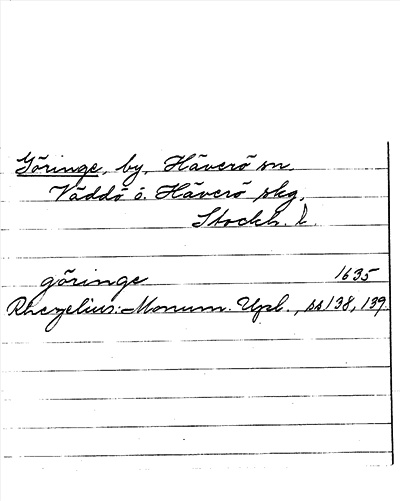 Göringe, by, Häverö sn.
Väddö o. Häverö skg,
Stockh. l.
göringe 1635
Rhezelius: Monum. Upl., ss 138, 139.